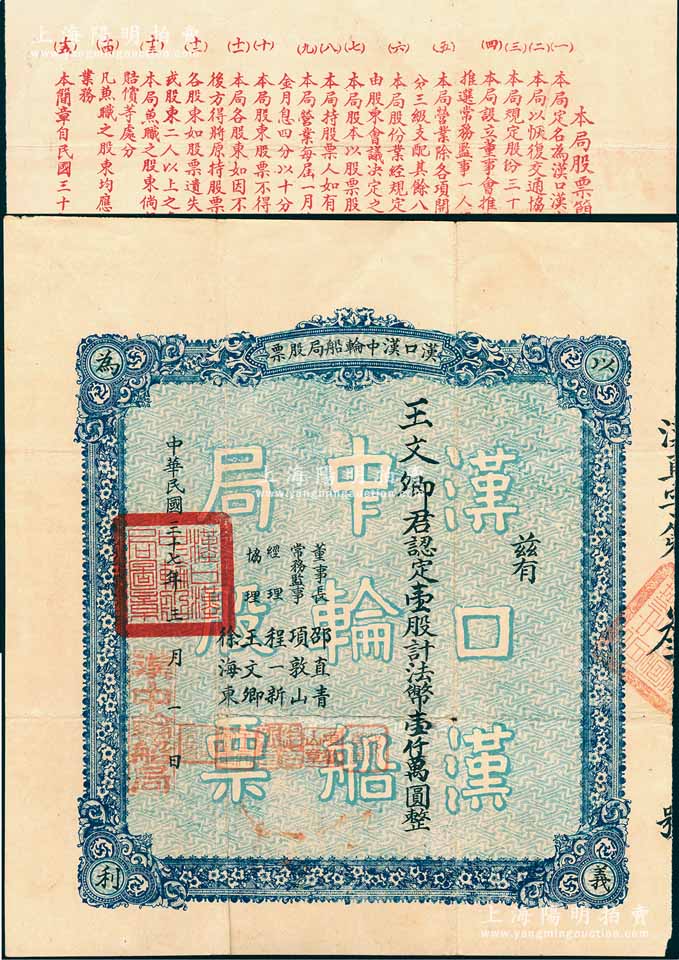 上海陽明拍賣
本局股票簡
(一) 本局定名為漢口漢
(二) 本局以恢復交通協
(三) 本局規定股份三十
(四) 本局設立董事會推
推選常務監事一人
(五) 本局營業除各項開
分三級支配其餘八
(六) 本局股份業經規定
由股東會議決定之
(七) 本局股本以股票股
(八) 本局持股票人如有
(九) 本局營業每屆一月
金月息四分以十分
(十) 本局股東股票不得
(十一) 本局各股東如因不
後方得將原持股票
(十二) 各股東如股票遺失
式股東二人以上之
(十三) 本局兼職之股東倘
賠償等處分
(十四) 凡兼職之股東均應
業務
(十五) 本簡章自民國三十
漢口漢中輪船局股票
以
為
義
利
漢口漢
中輪船
局股票
茲有
王文卿君認定壹股計法幣壹仟萬圓整
董事長 邵直青
常務監事 項敦山
經理 程一新
協理 王文卿
徐海東
中華民國三十七年三月一日
漢中輪船局
號
上海陽明拍賣
www.yangmingauction.com
上海陽明拍賣
www.yangmingauction.com